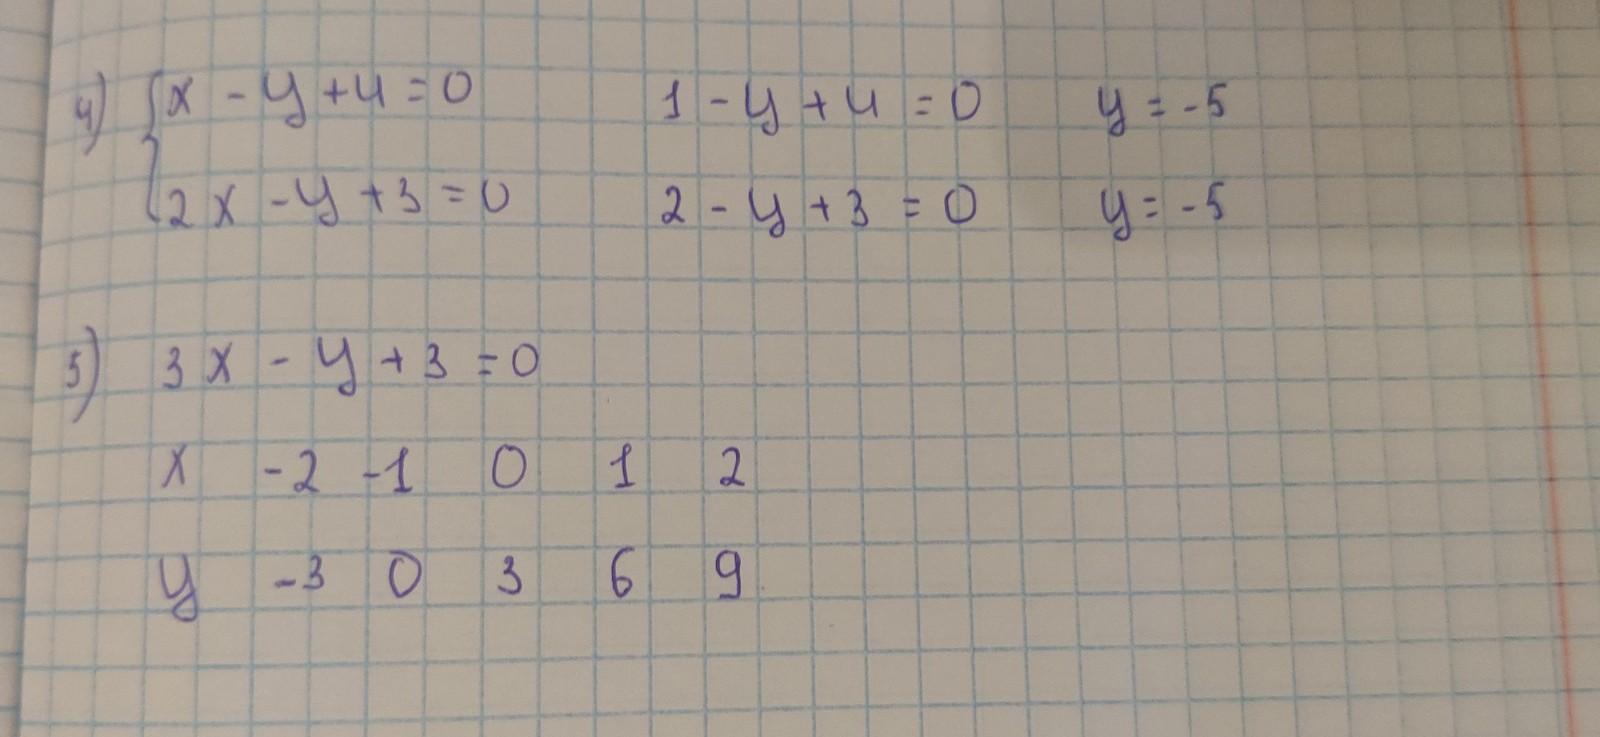 4) { x - y + 4 = 0    1 - y + 4 = 0    y = -5
2x - y + 3 = 0    2 - y + 3 = 0    y = -5
5) 3x - y + 3 = 0
x -2 -1 0 1 2
y -3 0 3 6 9